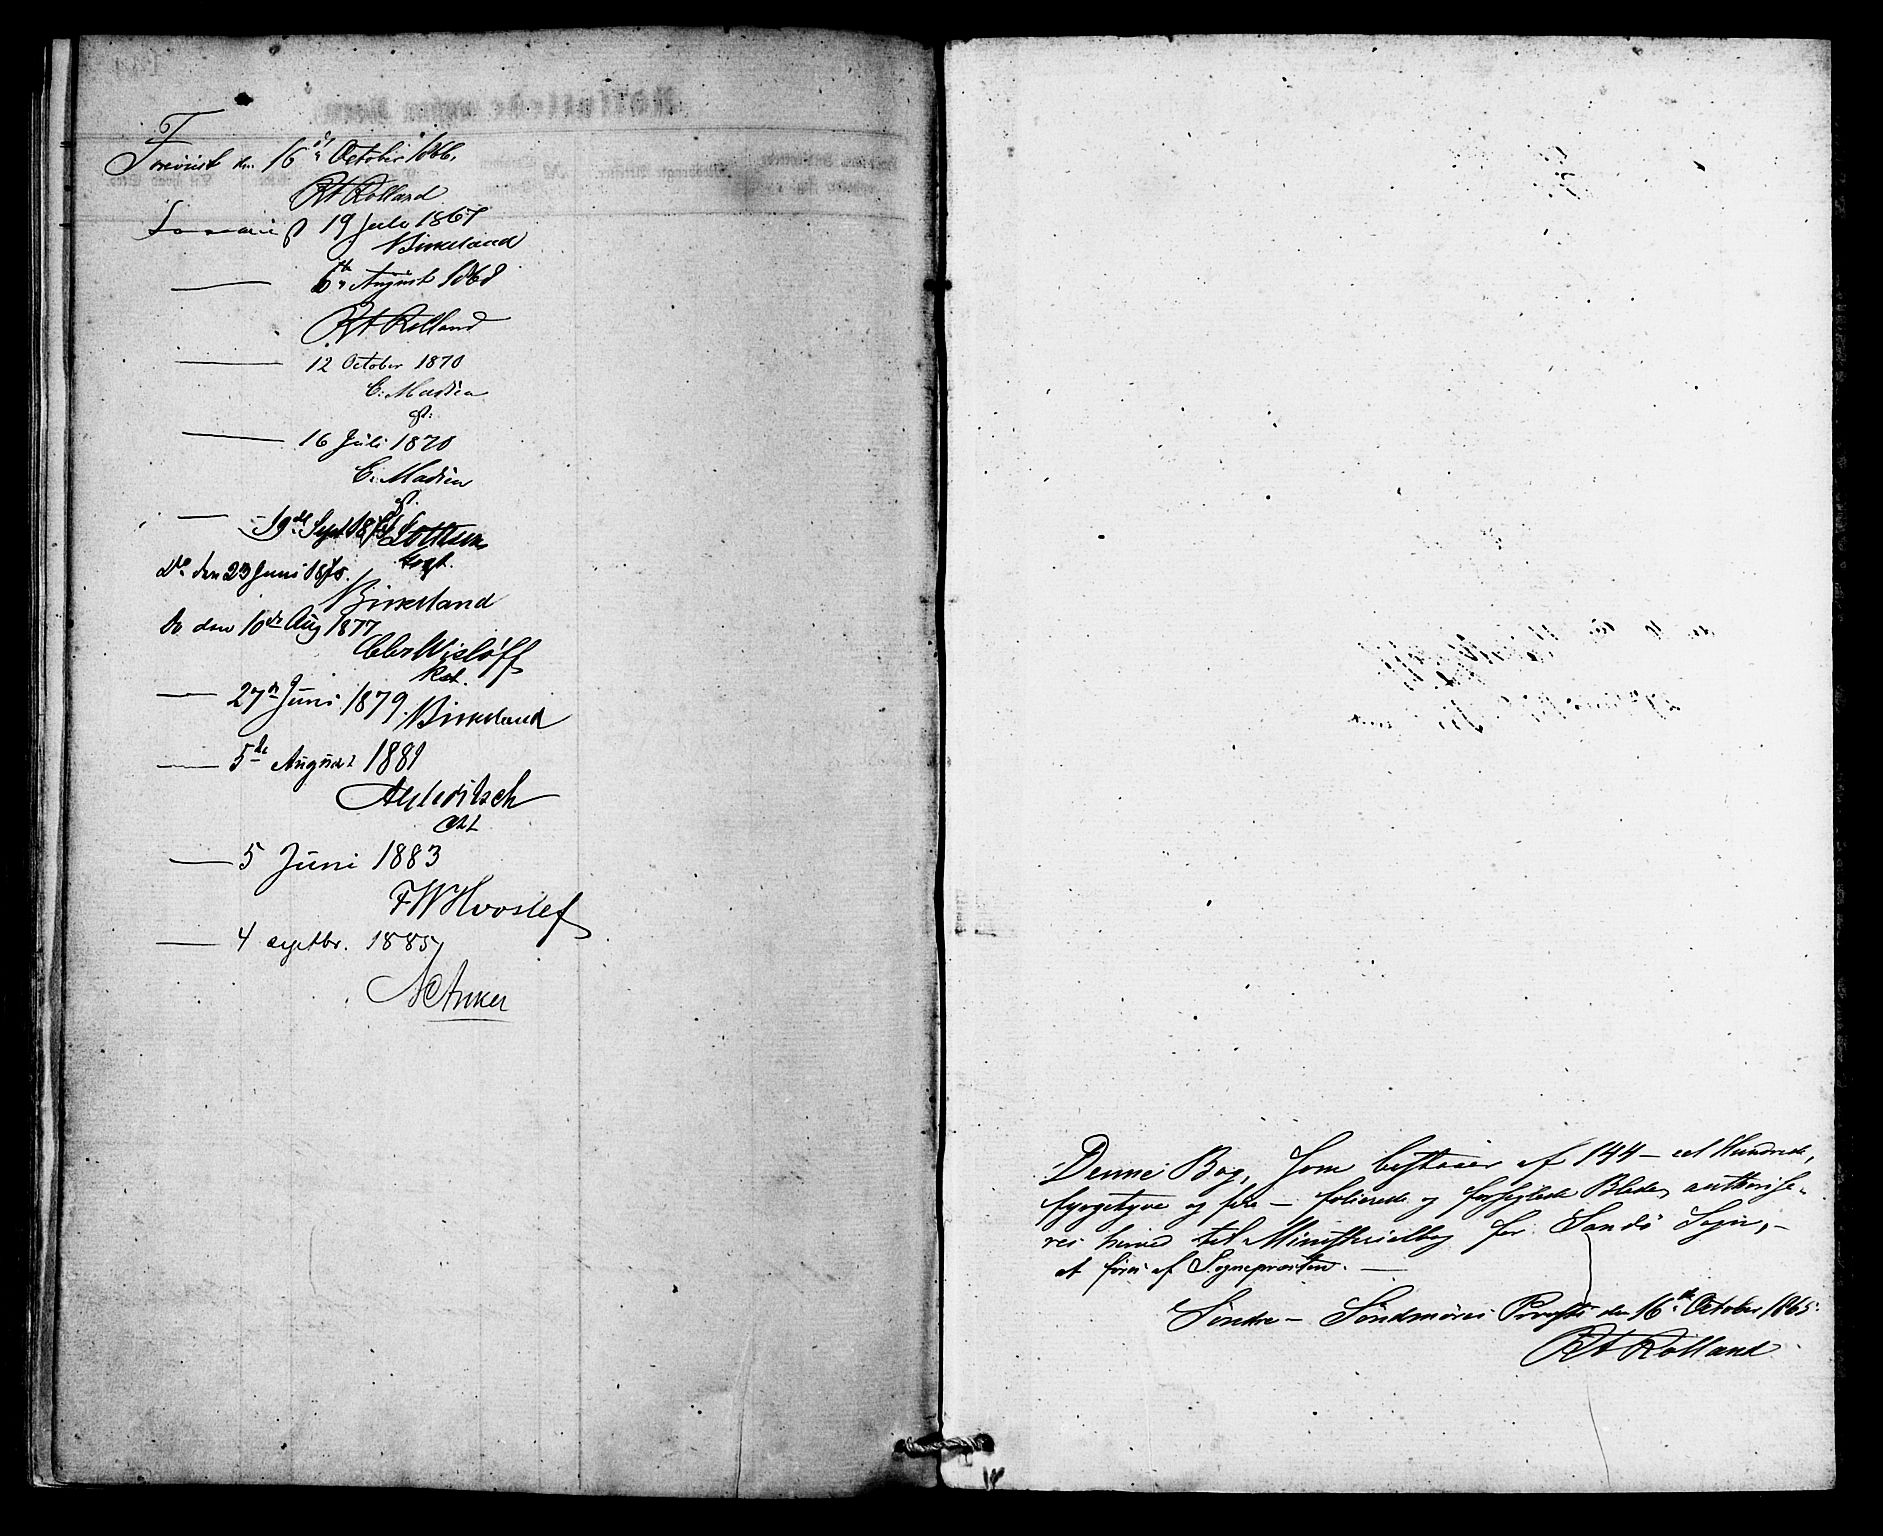 Forevist den 16de October 1866.
RA Rolland
Forevist 19 Juli 1867
Birkeland
— 6te August 1868
RA Rolland
— 12 October 1870
C. Madsen
cst:
— 16 Juli 1870
C. Madsen
cst.
— 19de Sept 187
do den 23 Juni 1875.
Birkeland
do den 10de Aug 1877
Wisløff
Kst.
— 27de Juni 1879. Birkeland
— 5te August 1881
cst
— 5 Juni 1883
FW Hvoslef
— 4 septbr. 1885
Anker
Denne Bog, som bestaaer af 144 – eet Hundrede,
fyrgetyve og fire – folierede og forseglede Blade, authorise-
res herved til Ministerialbog for Sandø Sogn, –
at føres af Sognepræsten. —
Søndre – Søndmøres Provsti den 16de October 1865.
RA Rolland